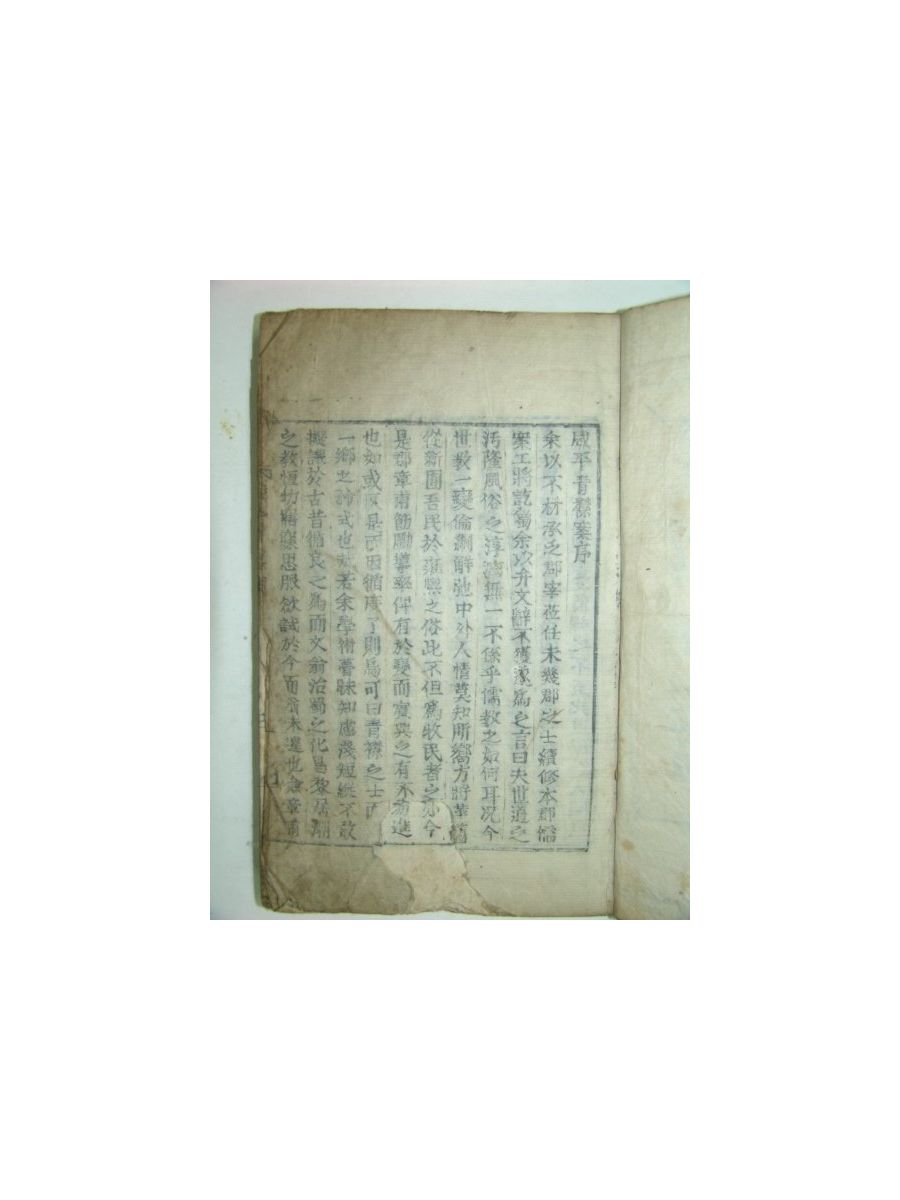 咸平青襟案序
余以不材承乏郡宰莅任未幾郡之士續修本郡儒
案工將訖獨余以弁文辭不獲遂爲之言曰夫世道之
汚隆風俗之淳漓無二不係乎儒教之如何耳況今
世教一變倫剬解弛中外人情莫知所嚮方將華舊
從新囿吾民於熙之俗此不但爲牧民者之亦今
是郡章甫筋勵導率俾有於變而實興之有不進
也如或是而因循度了則烏可曰青襟之士而
一鄕之矜式也若余學術蔑昧知慮淺短縱不敢
擬議於古昔循良之爲而文翁治蜀之化昌黎居潮
之教恆切寤寐思服欲試於今而未遑也章甫